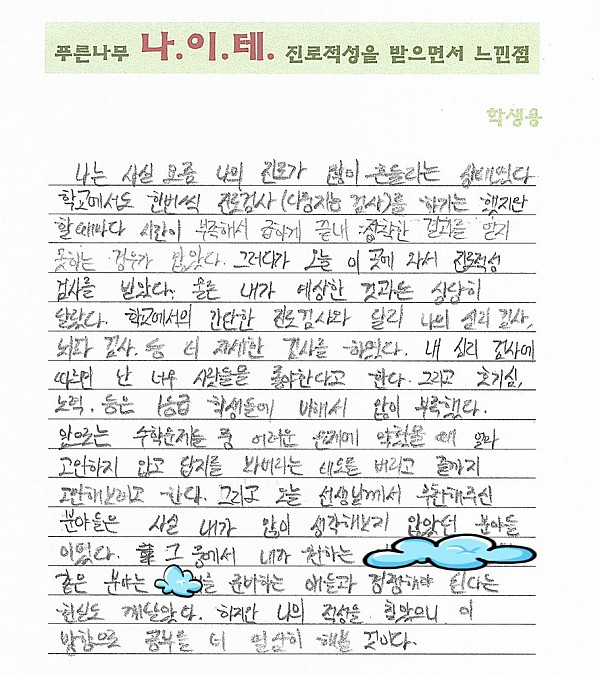 푸른나무 나.이.테. 진로적성을 받으면서 느낀점
학생용
나는 사실 요즘 나의 진로가 많이 흔들리는 상태였다
학교에서도 한번씩 진로검사(다중지능 검사)를 하기는 했지만
할때마다 시간이 부족해서 급하게 끝내 정확한 결과를 얻지
못하는 경우가 많았다. 그러다가 오늘 이 곳에 와서 진로적성
검사를 받았다. 물론 내가 예상한 것과는 상당히
달랐다. 학교에서의 간단한 진로검사와 달리 나의 심리 검사,
뇌파 검사. 등 더 자세한 검사를 하였다. 내 심리 검사에
따르면 난 너무 사람들을 좋아한다고 한다. 그리고 호기심,
노력. 등은 1등급 학생들에 비해서 많이 부족했다.
앞으로는 수학문제들 중 어려운 문제에 막혔을 때 얼마
고민하지 않고 답지를 봐버리는 태도를 버리고 끝까지
고민해보려고 한다. 그리고 오늘 선생님께서 추천해주신
분야들은 사실 내가 많이 생각해보지 않았던 분야들
이었다. 그 중에서 내가 원하는
좋은 분야는 을 준비하는 애들과 경쟁해야 된다는
현실도 깨달았다. 하지만 나의 적성을 알았으니 이
방향으로 공부를 더 열심히 해볼 것이다.